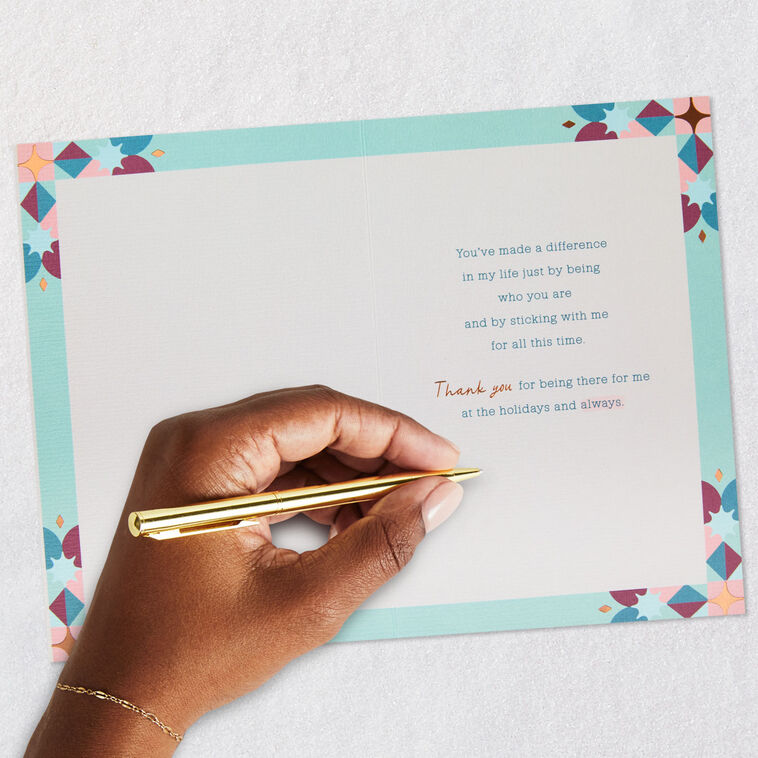 You've made a difference
in my life just by being
who you are
and by sticking with me
for all this time.
Thank you for being there for me
at the holidays and always.